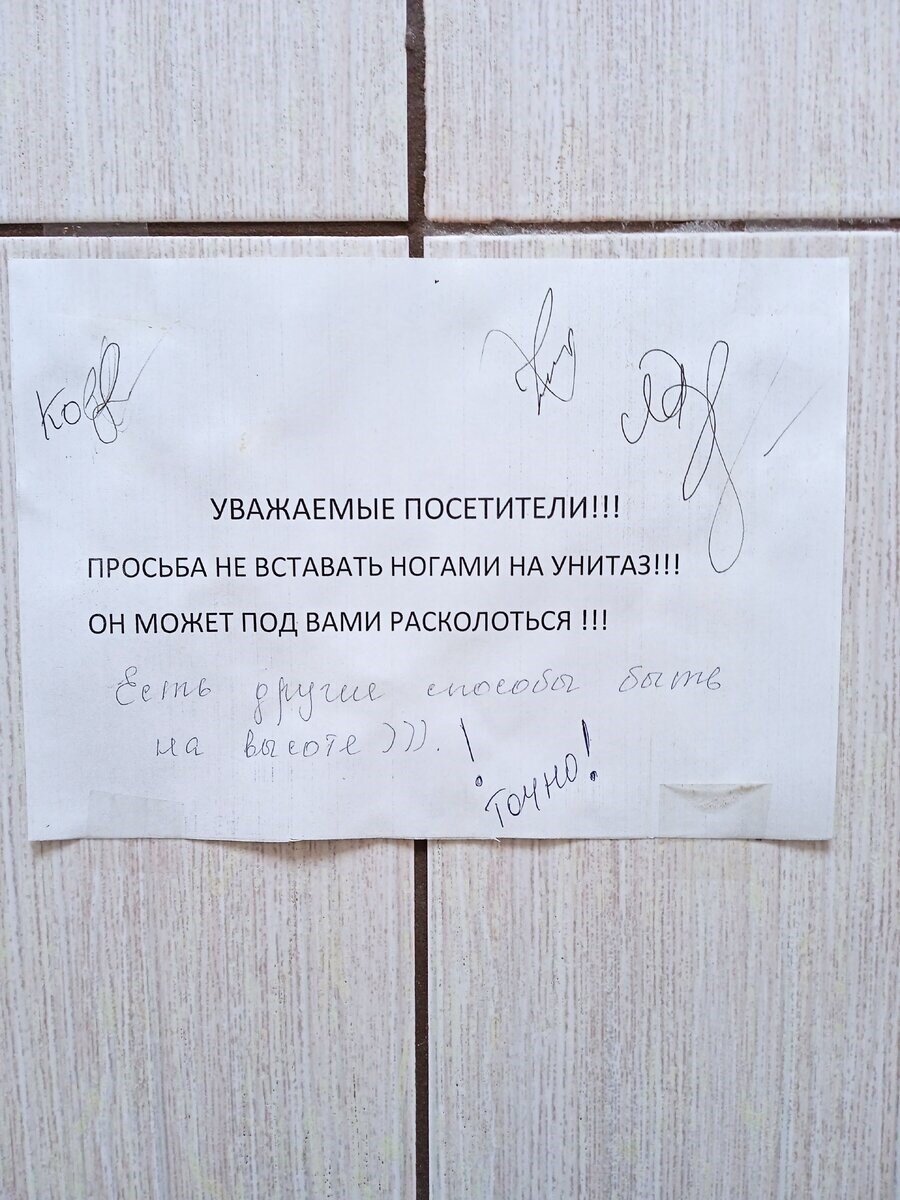 УВАЖАЕМЫЕ ПОСЕТИТЕЛИ!!!
ПРОСЬБА НЕ ВСТАВАТЬ НОГАМИ НА УНИТАЗ!!!
ОН МОЖЕТ ПОД ВАМИ РАСКОЛОТЬСЯ !!!
Есть другие способы быть
на высоте ))). !
Точно!